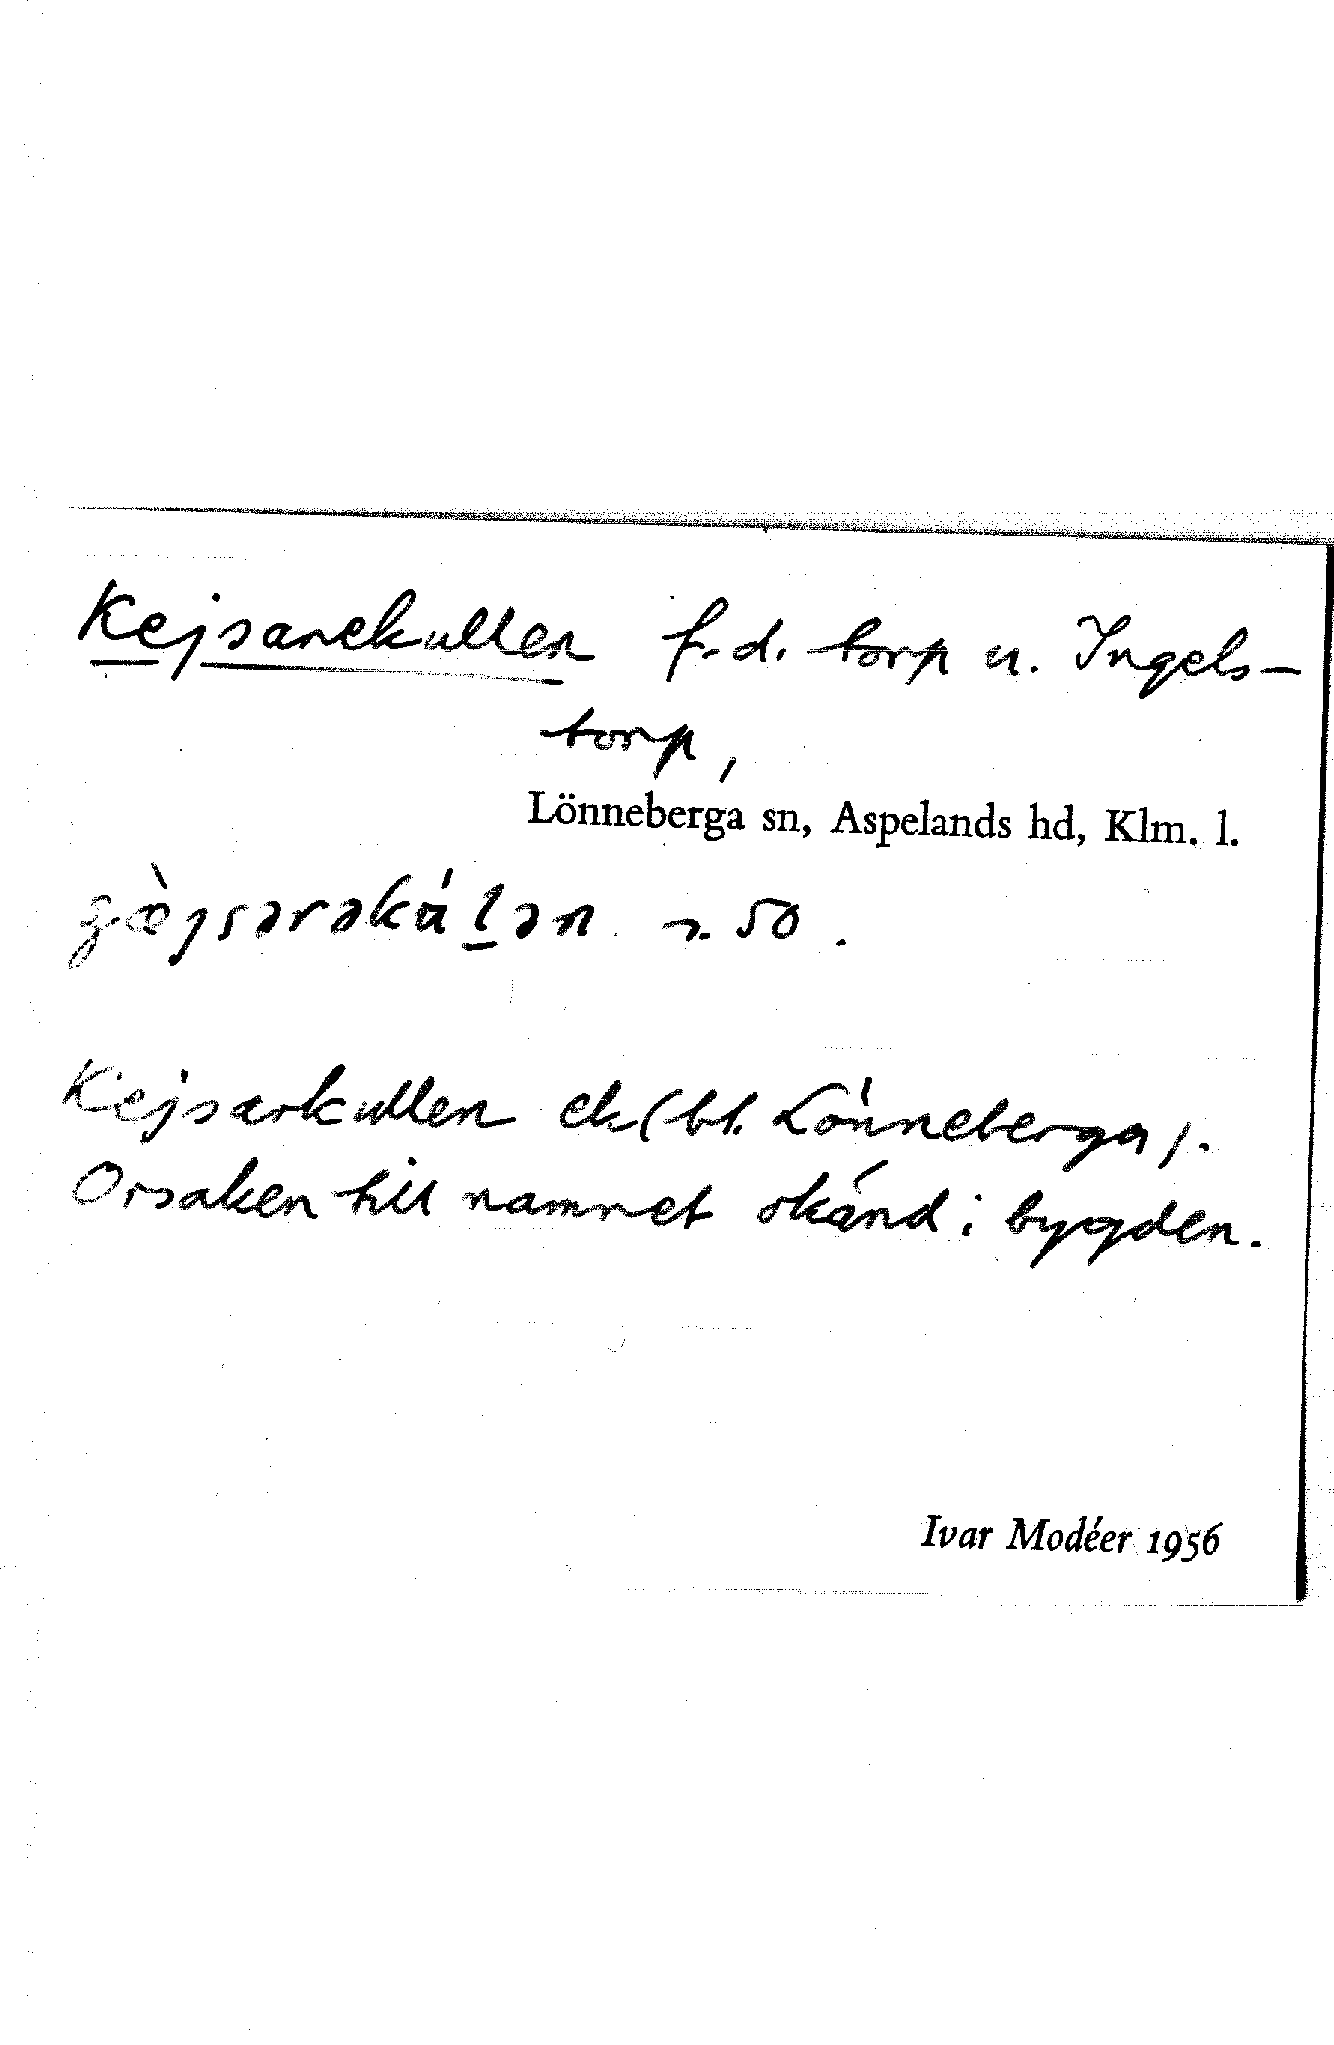 Kejsarekullen f.d. torp u. Ingels-
torp,
Lönneberga sn, Aspelands hd, Klm. l.
50.
Kejsarkullen ek (bl. Lönneberga).
Orsaken till namnet okänd i bygden.
Ivar Modéer 1956